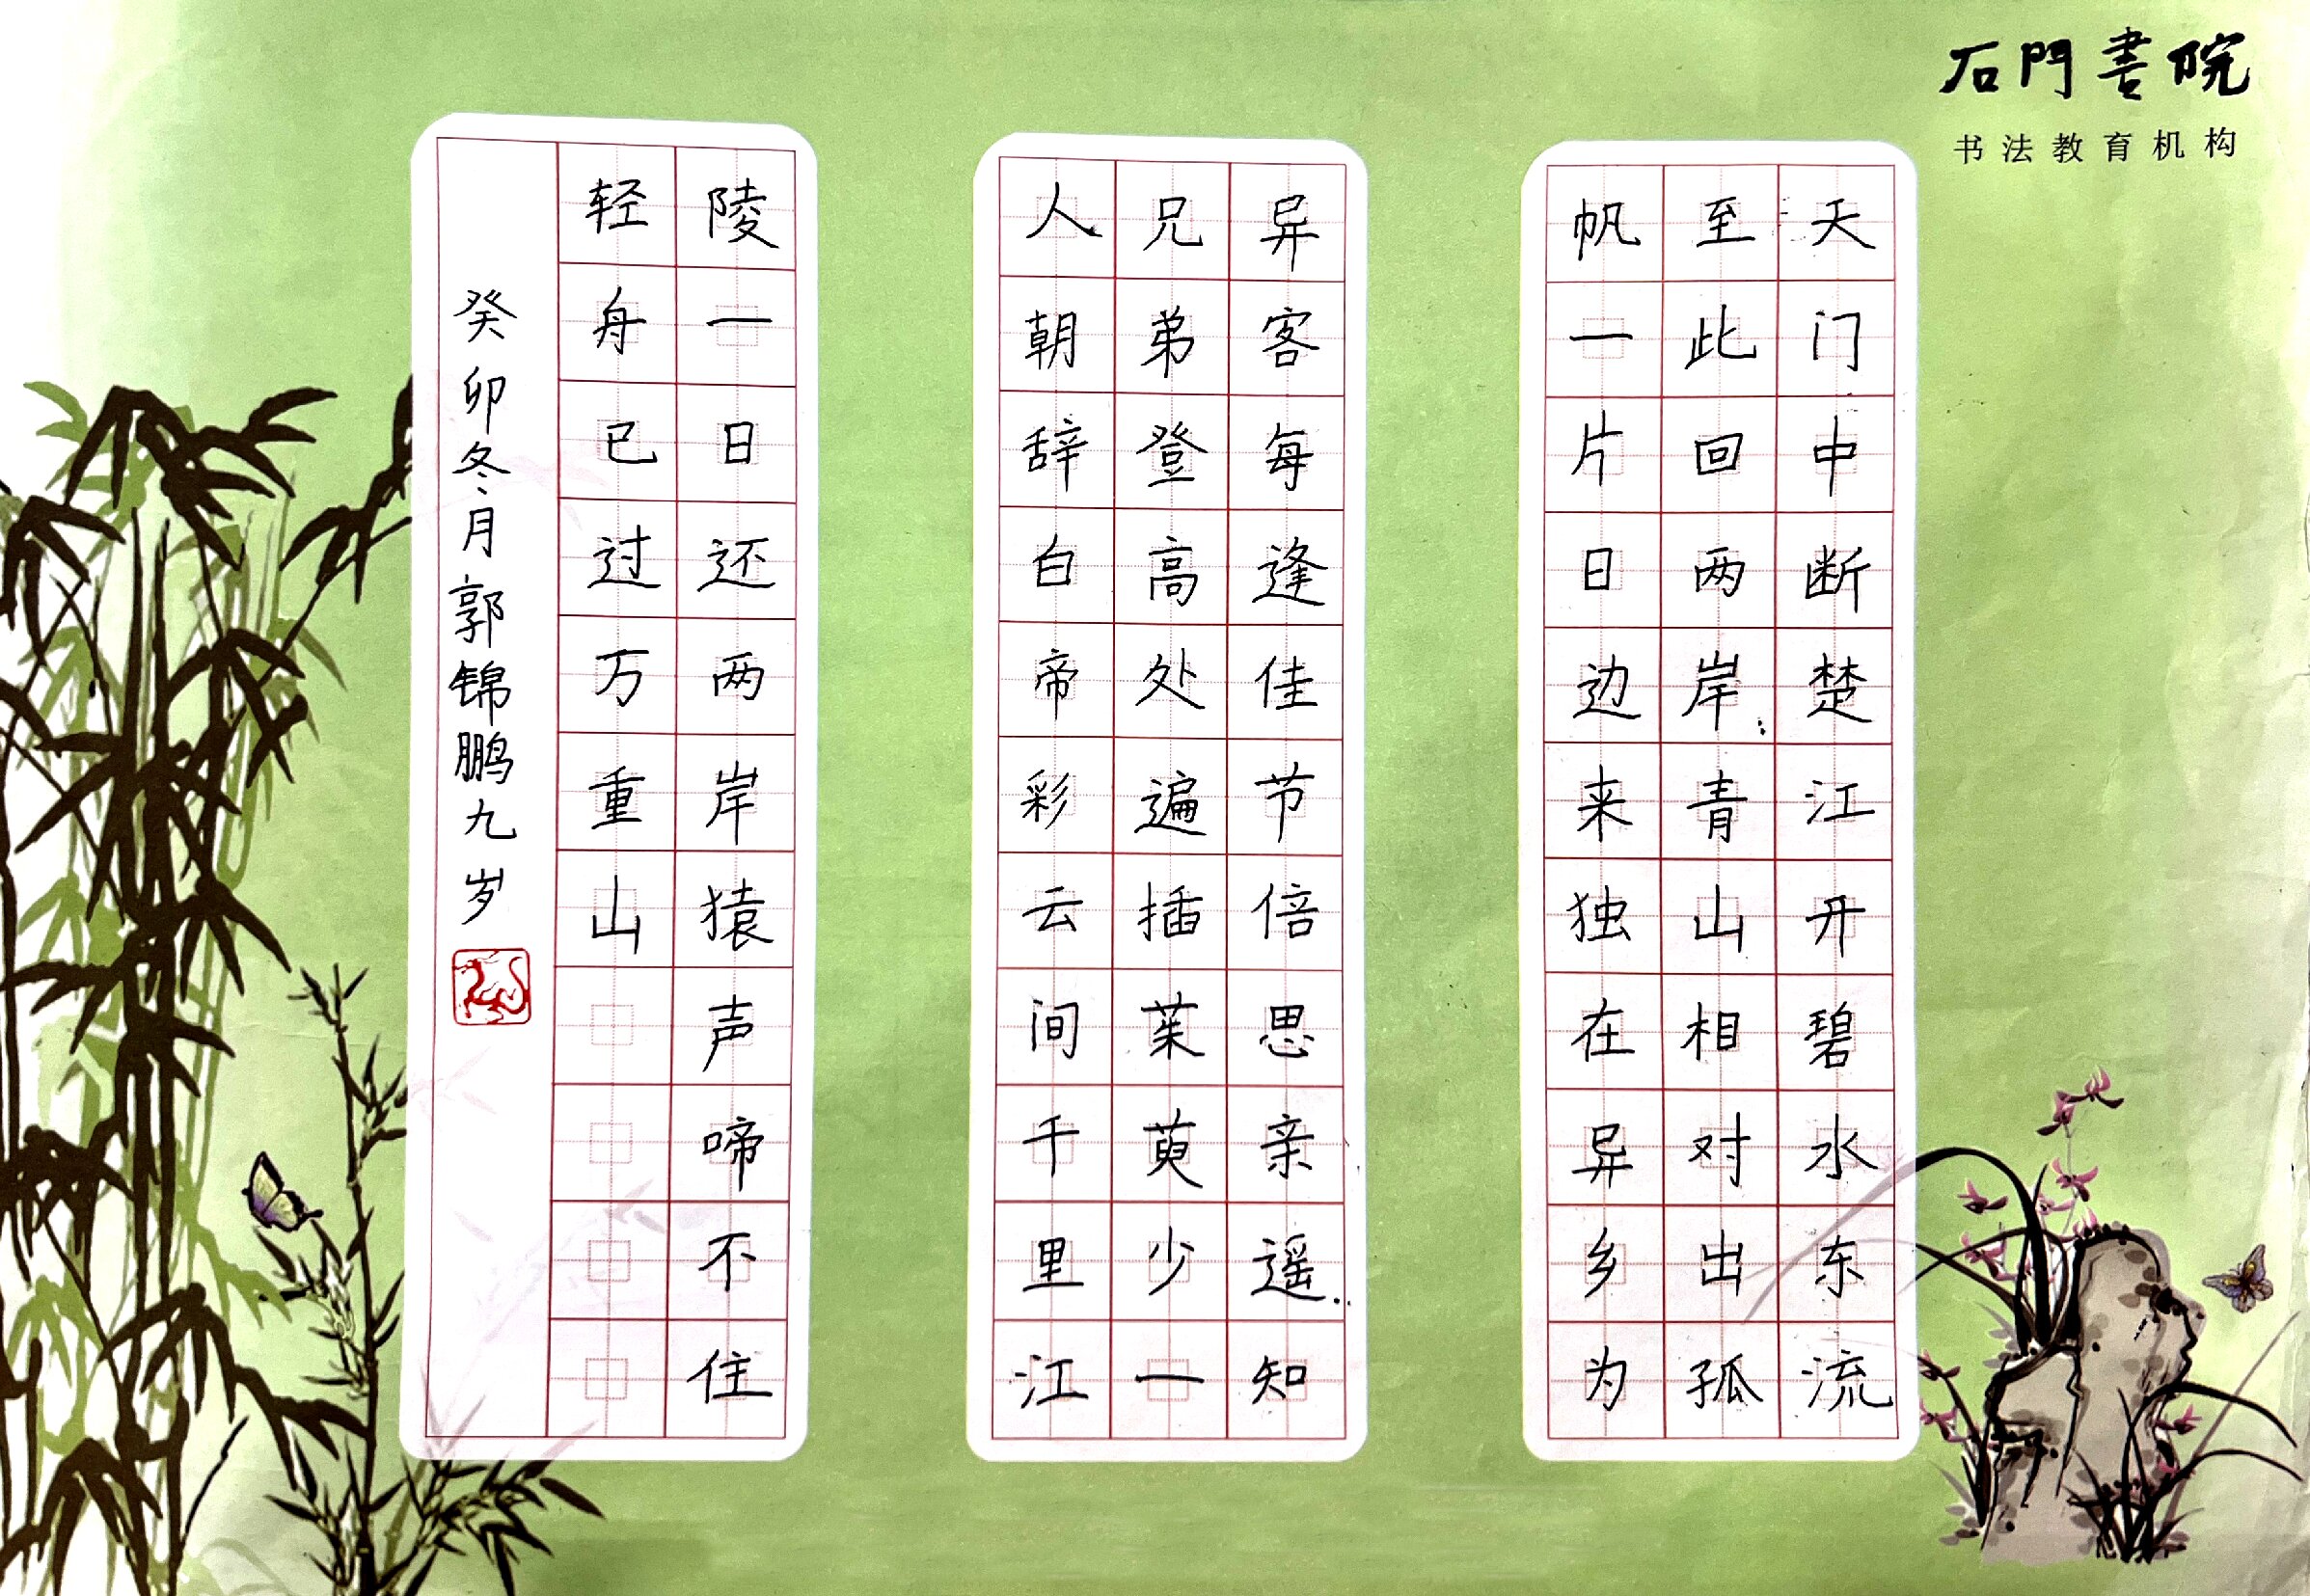 石門書院
书法教育机构
天门中断楚江开碧水东流
至此回两岸青山相对出孤
帆一片日边来独在异乡为
异客每逢佳节倍思亲遥知
兄弟登高处遍插茱萸少一
人朝辞白帝彩云间千里江
陵一日还两岸猿声啼不住
轻舟已过万重山
癸卯冬月郭锦鹏九岁